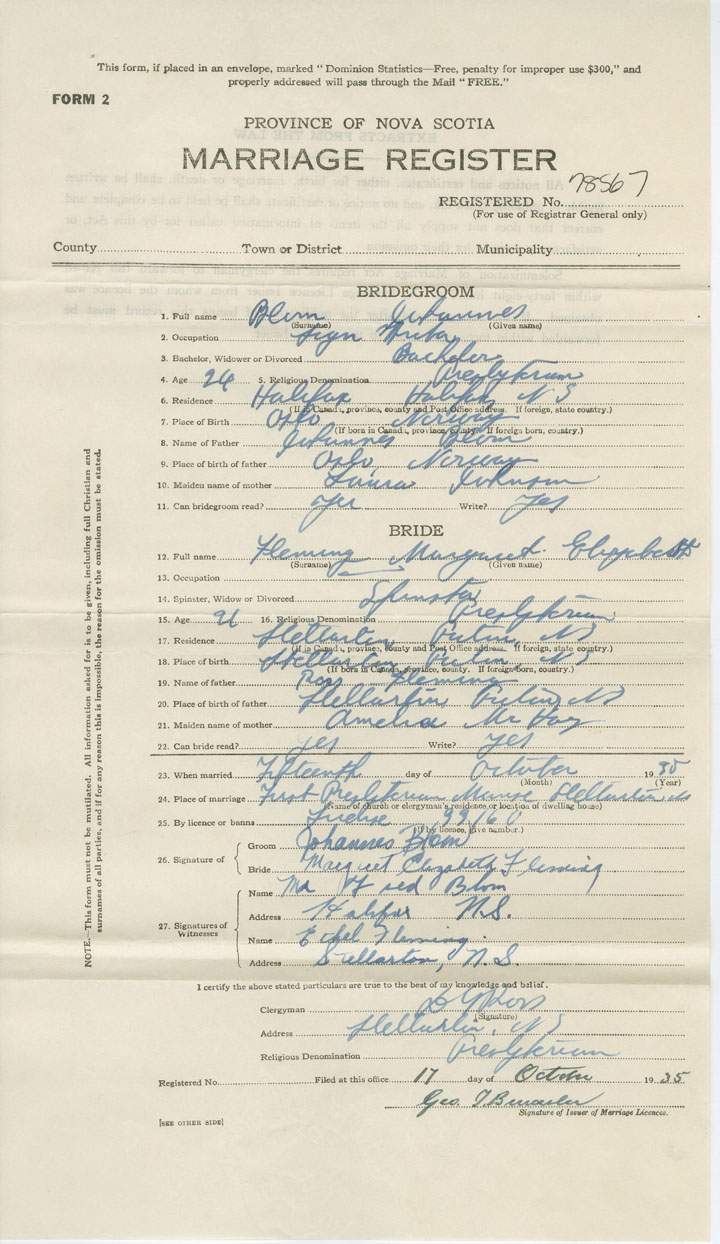 This form, if placed in an envelope, marked "Dominion Statistics—Free, penalty for improper use $300," and
properly addressed will pass through the Mail "FREE."
FORM 2
PROVINCE OF NOVA SCOTIA
MARRIAGE REGISTER
REGISTERED No. 78567
(For use of Registrar General only)
County Town or District Municipality
BRIDEGROOM
1. Full name Blom Johannes
(Surname) (Given name)
2. Occupation Sign Writer
3. Bachelor, Widower or Divorced Bachelor
4. Age 26 5. Religious Denomination Presbyterian
6. Residence Halifax Halifax N S
(If in Canada, province, county and Post Office address. If foreign, state country.)
7. Place of Birth Oslo Norway
(If born in Canada, province, county. If foreign born, country.)
8. Name of Father Johannes Blom
9. Place of birth of father Oslo Norway
10. Maiden name of mother Laura Johnson
11. Can bridegroom read? Yes Write? Yes
BRIDE
12. Full name Fleming Margaret Elizabeth
(Surname) (Given name)
13. Occupation
14. Spinster, Widow or Divorced Spinster
15. Age 21 16. Religious Denomination Presbyterian
17. Residence Stellarton Pictou, N S
(If in Canada, province, county and Post Office address. If foreign, state country.)
18. Place of birth Stellarton Pictou N S
(If born in Canada, province, county. If foreign born, country.)
19. Name of father Ross Fleming
20. Place of birth of father Stellarton Pictou N S
21. Maiden name of mother Amelia McKay
22. Can bride read? Yes Write? Yes
23. When married Fifteenth day of October 1935
(Month) (Year)
24. Place of marriage First Presbyterian Manse Stellarton NS
(Name of church or clergyman's residence or location of dwelling house)
25. By licence or banns License 99160
(If by licence, give number.)
26. Signature of Groom Johannes Blom
Bride Margaret Elizabeth Fleming
27. Signatures of Witnesses
Name Mr Fred Blom
Address Halifax N.S.
Name Ethel Fleming
Address Stellarton, N.S.
NOTE.—This form must not be mutilated. All information asked for is to be given, including full Christian and
surnames of all parties, and if for any reason this is impossible, the reason for the omission must be stated.
I certify the above stated particulars are true to the best of my knowledge and belief.
Clergyman
(Signature)
Address Stellarton, NS
Religious Denomination Presbyterian
Registered No. Filed at this office 17 day of October 1935
Geo. T.
Signature of Issuer of Marriage Licences.
[SEE OTHER SIDE]